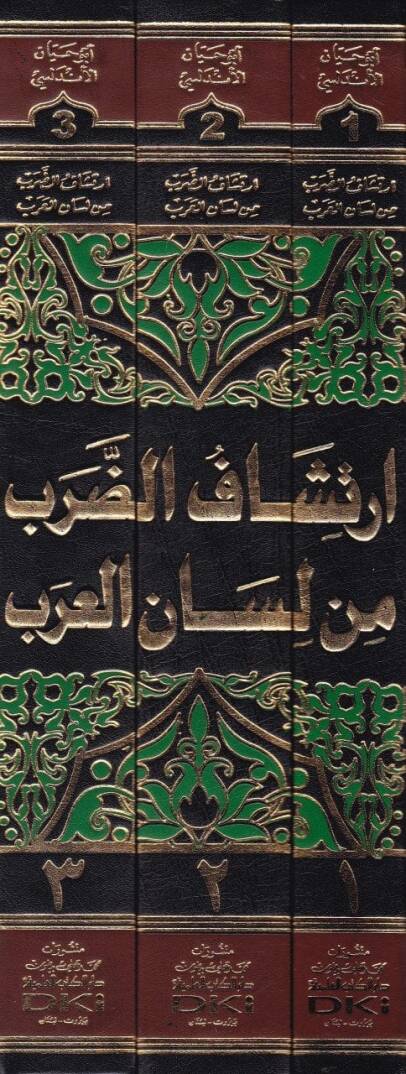 أبو حيان
الأندلسي
1
ارتشاف الضرب
من لسان العرب
أبو حيان
الأندلسي
2
ارتشاف الضرب
من لسان العرب
أبو حيان
الأندلسي
3
ارتشاف الضرب
من لسان العرب
ارتشافُ الضَّرَب
مِن لِسَان العرَب
١
٢
٣
منشورات
محمد علي بيضون
دار الكتب العلمية
DKi
بيروت - لبنان
منشورات
محمد علي بيضون
دار الكتب العلمية
DKi
بيروت - لبنان
منشورات
محمد علي بيضون
دار الكتب العلمية
DKi
بيروت - لبنان